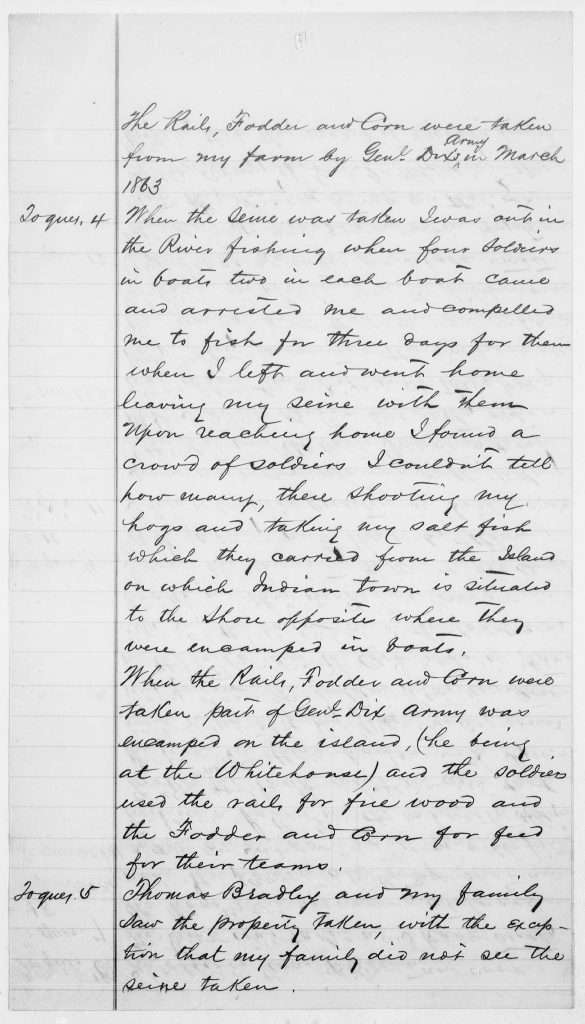 The Rails, Fodder and Corn were taken
from my farm by Genl. Dix's Army in March
1863
To ques. 4 When the seine was taken I was out in
the River fishing when four soldiers
in boats two in each boat came
and arrested me and compelled
me to fish for three days for them
when I left and went home
leaving my seine with them
Upon reaching home I found a
crowd of soldiers I couldn't tell
how many, there shooting my
hogs and taking my salt fish
which they carried from the Island
on which Indian town is situated
to the shore opposite where they
were encamped in boats.
When the Rails, Fodder and Corn were
taken part of Genl. Dix Army was
encamped on the island, (he being
at the Whitehouse) and the soldiers
used the rails for fire wood and
the Fodder and Corn for feed
for their teams.
To ques. 5 Thomas Bradley and my family
saw the property taken, with the excep-
tion that my family did not see the
seine taken.